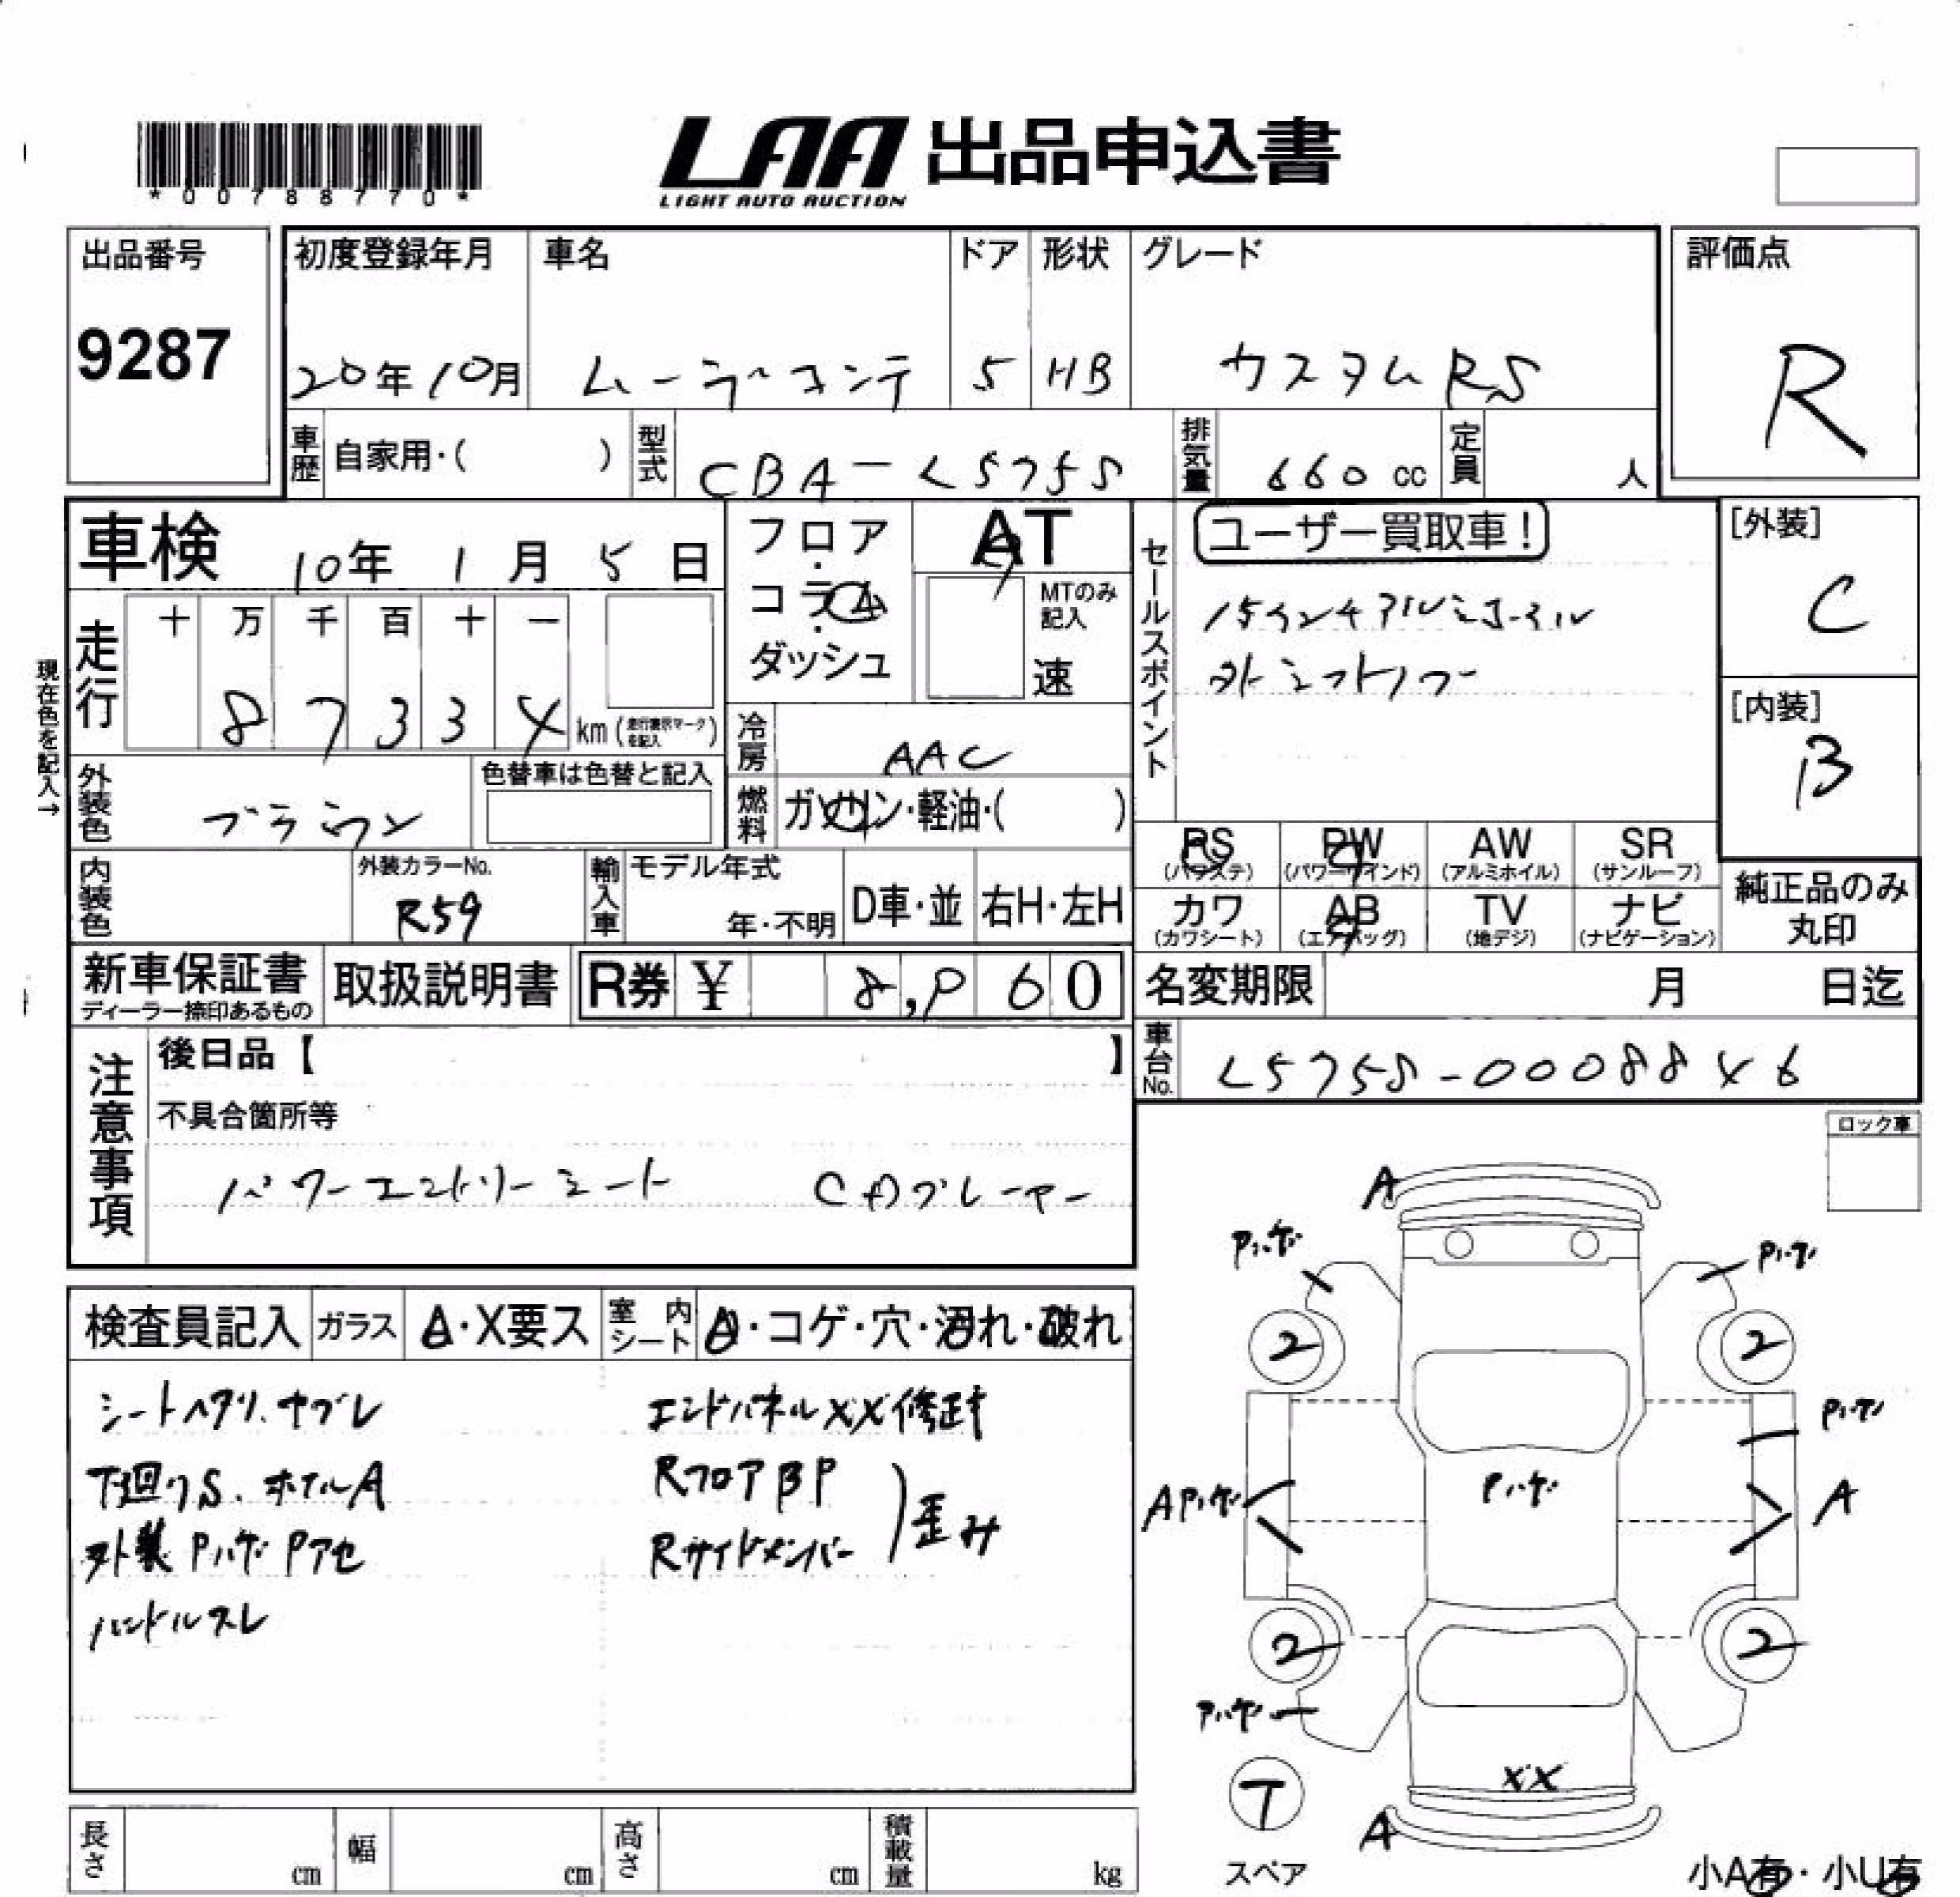 *00788770*
LAA 出品申込書
LIGHT AUTO AUCTION
出品番号
9287
初度登録年月
20年10月
車名
ムーヴコンテ
ドア
5
形状
HB
グレード
カスタムRS
評価点
R
車歴 自家用・( )
型式 CBA-L575S
排気量 660 cc
定員 人
車検 10年 1月 5日
フロア・コラム・ダッシュ
AT
MTのみ記入
速
セールスポイント
ユーザー買取車!
15インチアルミホイール
外ミラー
[外装]
C
[内装]
B
現在色を記入→
走行
十 万 千 百 十 一
8 7 3 3 4 km (走行表示マークを記入)
冷房 AAC
燃料 ガソリン・軽油・( )
外装色 ブラウン
色替車は色替と記入
内装色
外装カラーNo.
R59
輸入車
モデル年式
年・不明
D車・並
右H・左H
PS (パワステ)
PW (パワーウインド)
AW (アルミホイル)
SR (サンルーフ)
カワ (カワシート)
AB (エアバッグ)
TV (地デジ)
ナビ (ナビゲーション)
純正品のみ丸印
新車保証書
ディーラー捺印あるもの
取扱説明書
R券 ¥ 8,960
名変期限 月 日迄
車台No. L575S-0008846
注意事項
後日品【 】
不具合箇所等
パワーエントリーシート CDプレーヤー
ロック車
検査員記入
ガラス A・X要ス
室内シート A・コゲ・穴・汚れ・破れ
シートヘタリ.ヤブレ
下廻りS.ホイルA
外装 Pハゲ Pアセ
ハンドルスレ
エンドパネルXX修正キ
RフロアBP
Rサイドメンバー
歪み
A
Pハゲ
Pハゲ
2
2
Pハゲ
APハゲ
Pハゲ
A
2
2
Pハゲ
XX
T
A
スペア
小A有・小U有
長さ cm
幅 cm
高さ cm
積載量 kg